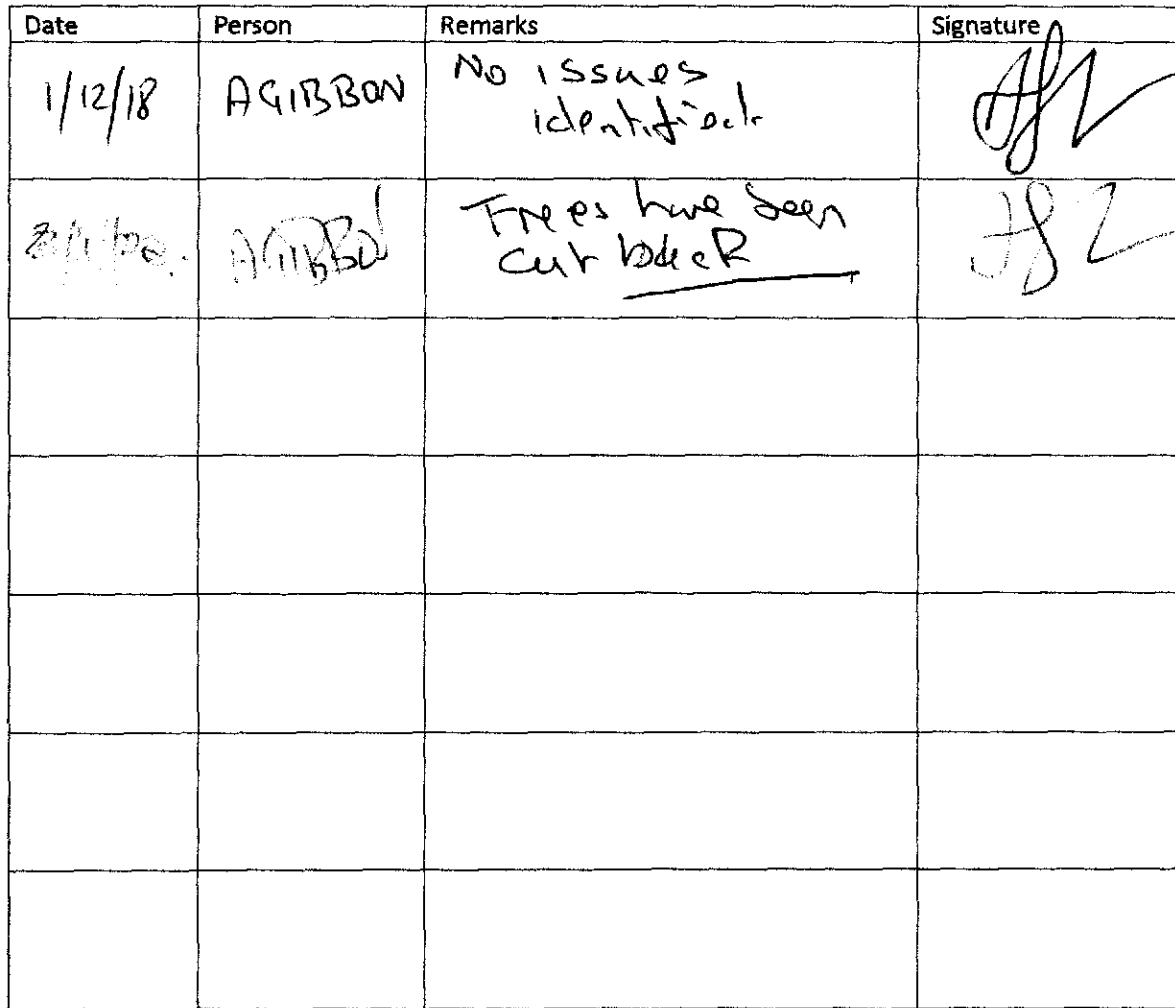 Date Person Remarks Signature
1/12/18 A GIBBON No issues
identified.
A GIBBON Trees have been
cut back